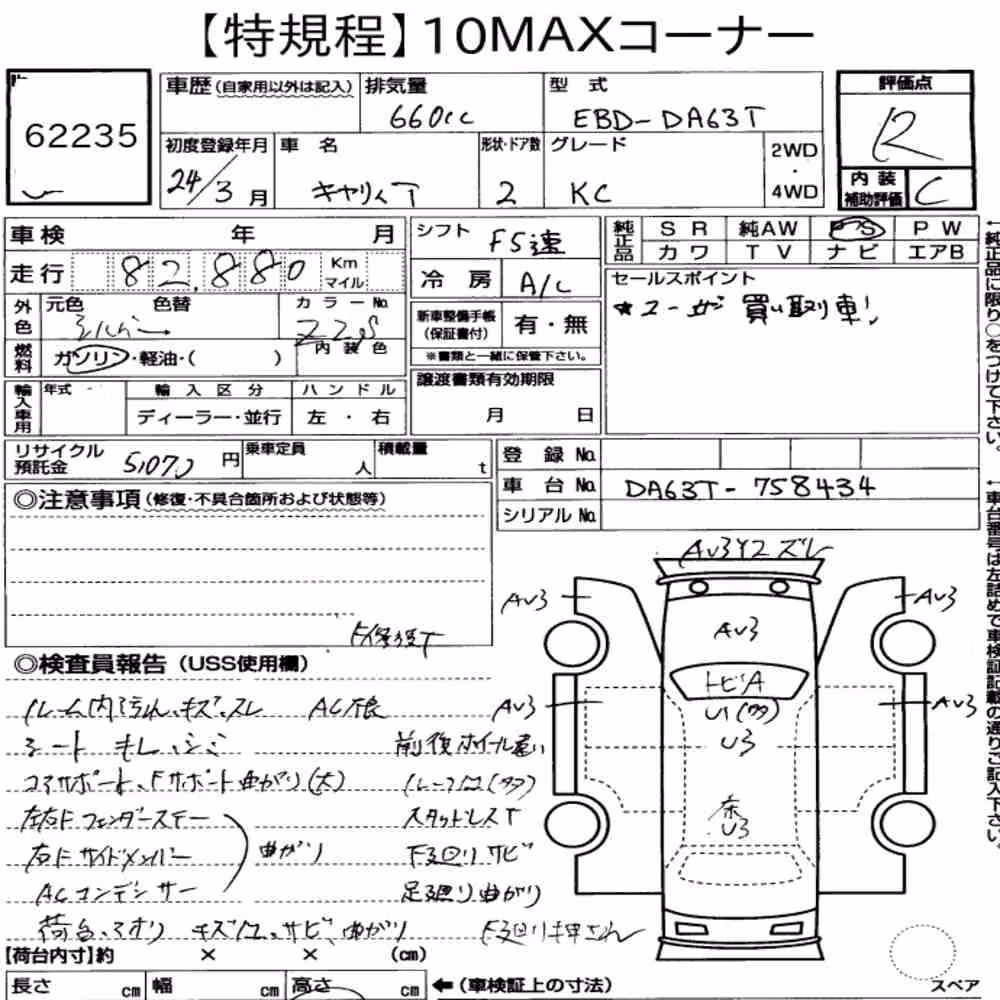 【特規程】10MAXコーナー
62235
車歴 (自家用以外は記入) 排気量 型式
660cc EBD-DA63T
初度登録年月 車名 形状・ドア数 グレード 2WD・4WD
24/3月 キャリィT 2 KC
評価点
R
内装補助評価 C
車検 年 月
走行 82,880 Km マイル
外色 元色 色替 カラーNo.
シルバー Z2S
内装色
燃料 ガソリン・軽油・( )
輸入車用 年式 輸入区分 ハンドル
ディーラー・並行 左・右
シフト F5速
冷房 A/C
新車整備手帳(保証書付) 有・無
※書類と一緒に保管下さい。
譲渡書類有効期限
月 日
純正品 SR 純AW PS PW
カワ TV ナビ エアB
セールスポイント
★ユーザー買い取り車!
←純正品に限り○をつけて下さい。
リサイクル預託金 5,070円 乗車定員 人 積載量 t
登録No.
車台No. DA63T-758434
シリアルNo.
←車台番号は左詰めで車検証記載の通りご記入下さい。
◎注意事項(修復・不具合箇所および状態等)
◎検査員報告(USS使用欄)
ルーム内汚れ、キズ、スレ AC不良
シートキレ、シミ 前後ホイール違い
コアサポート、Fサポート曲がり(大)
左右Fフェンダーステー スタッドレスT
右Fサイドメンバー 曲がり 下廻りサビ
ACコンデンサー 足廻り曲がり
荷台、アオリ キズ凹、サビ、曲がり F下廻り押され
AV3Y2ズレ
AV3 AV3
AV3
トビA
U1(多)
AV3 AV3
U3
床
U3
【荷台内寸】約 × × (cm)
長さ cm 幅 cm 高さ cm ←(車検証上の寸法)
スペア